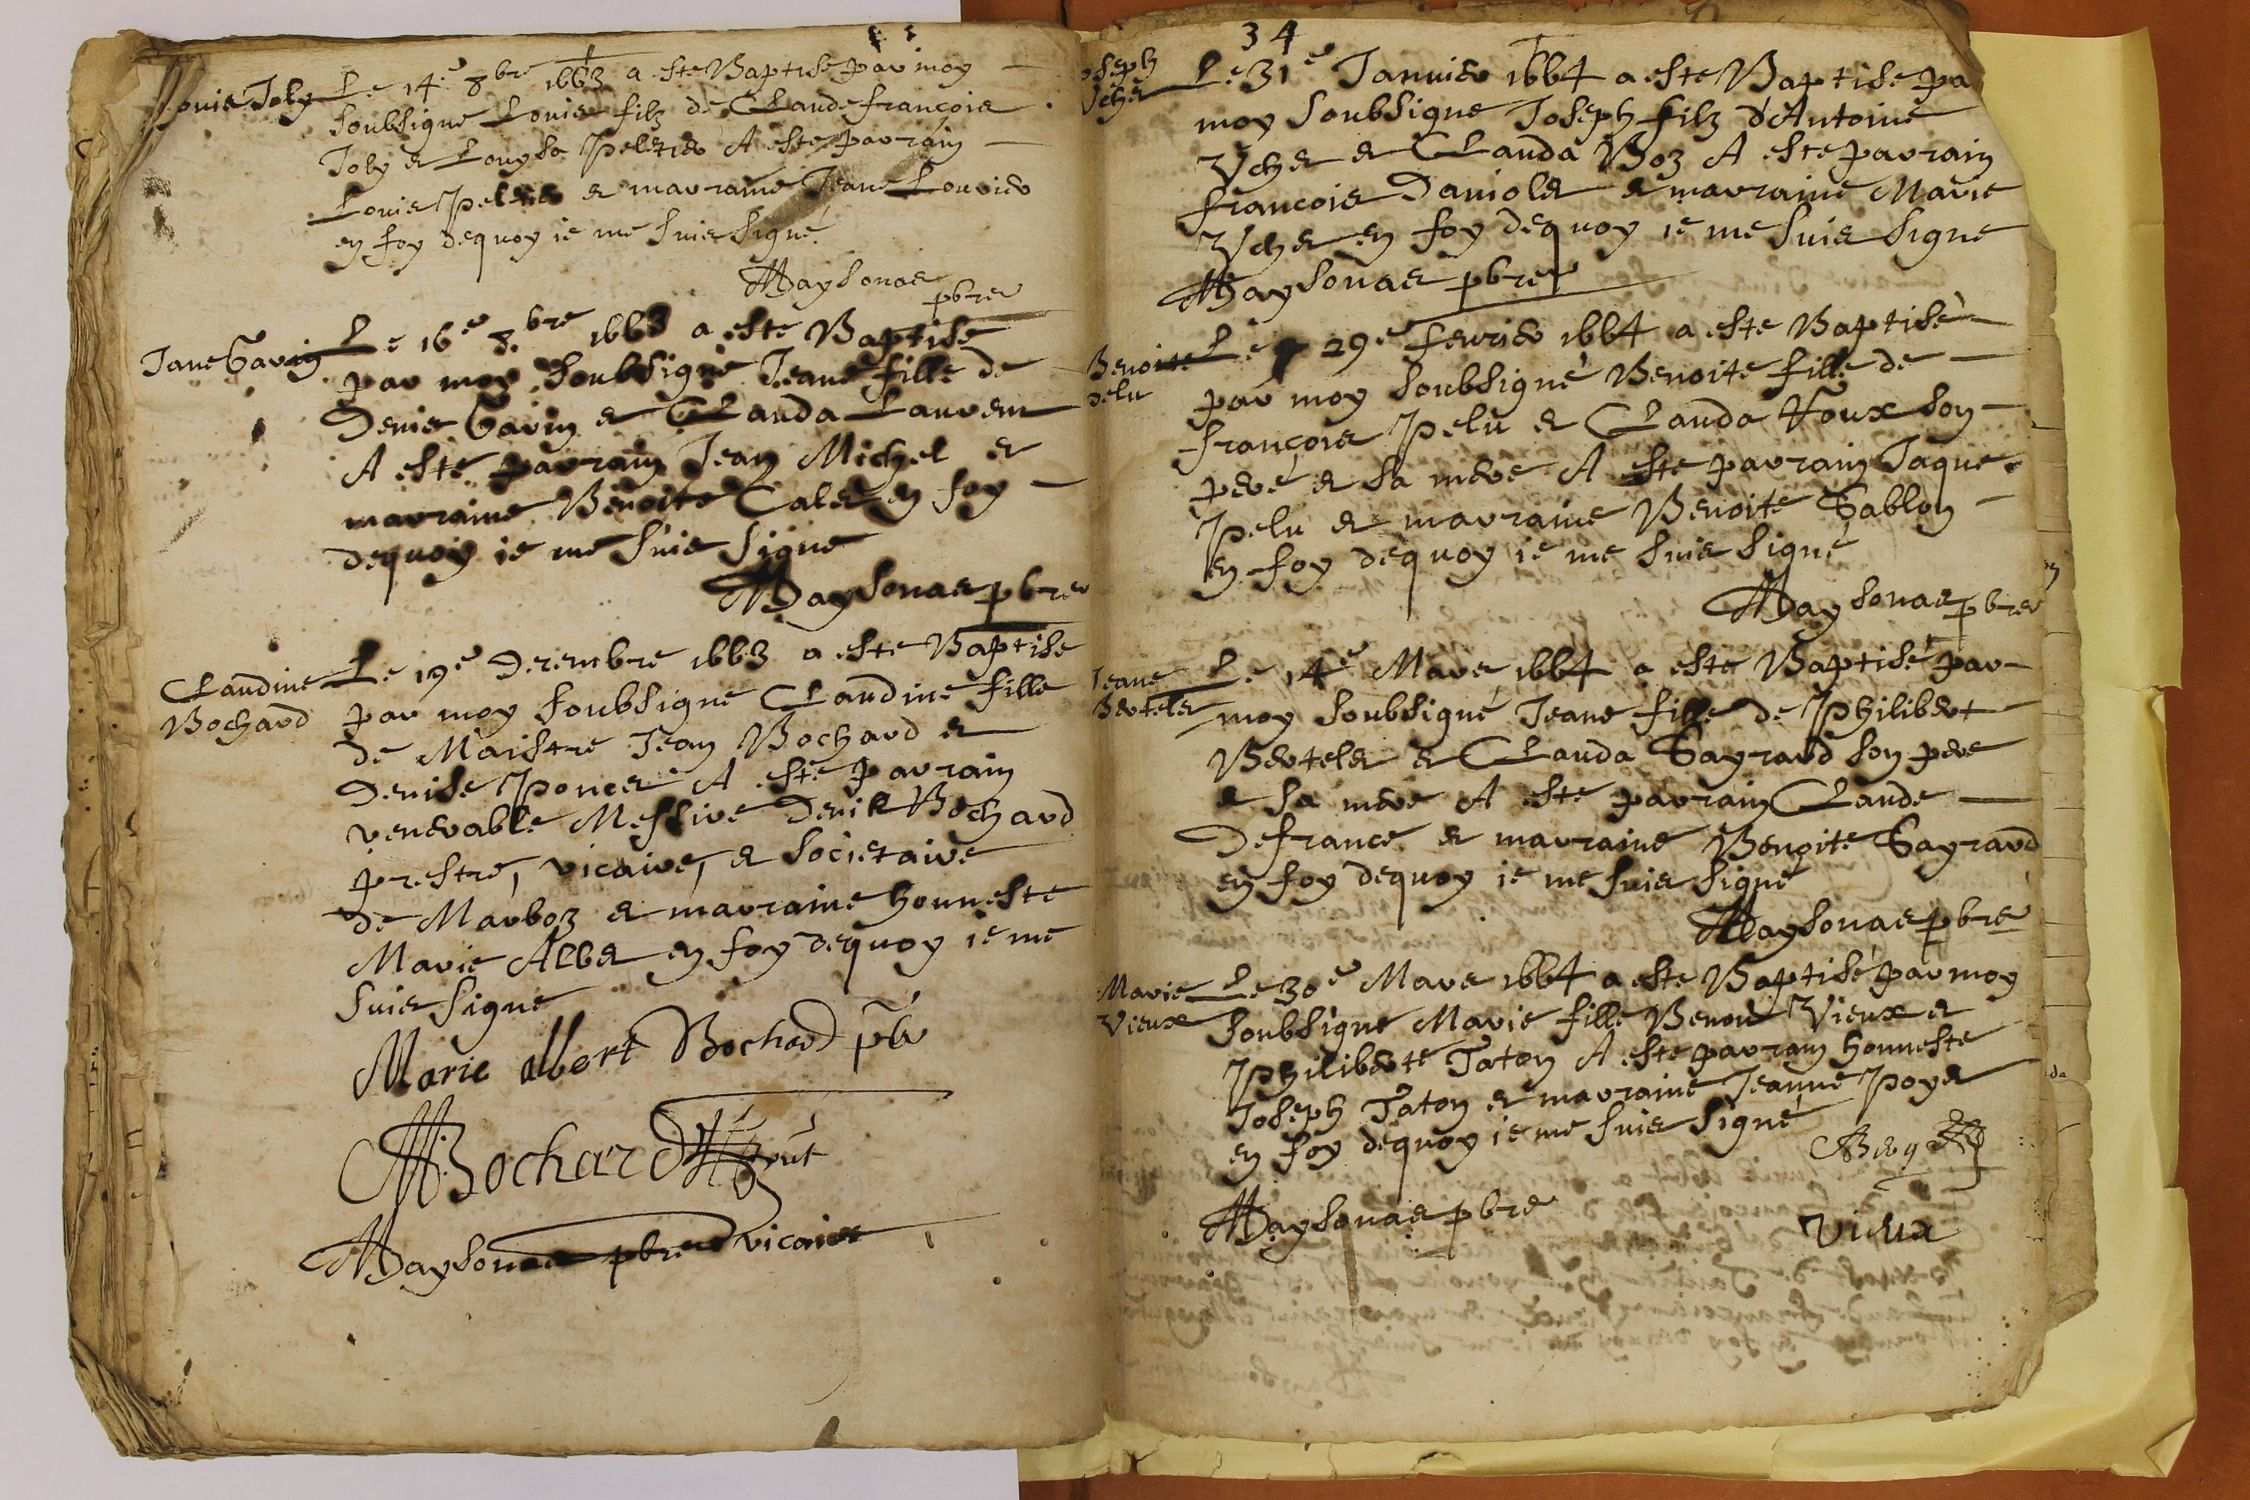 Louis Joly
Le 14e 8bre 1663 a este Baptise par moy
soubsigne Louis filz de Claude françois
Joly et Louysa Peletier A este parrain
Louis Peletier et marraine Jeane Louvier
en foy dequoy ie me suis signé
Maysonas
pbre
Jane Gavin
Le 16e 8bre 1663 a este Baptise
par moy soubsigne Jeane fille de
Denis Gavin et Clauda Laurent
A este parrain Jean Michel et
marraine Benoite Calet en foy
dequoy ie me suis signe
Maysonas pbre
Claudine
Bochard
Le 19e Decembre 1663 a este Baptise
par moy soubsigne Claudine fille
de Maistre Jean Bochard et
Denise Poncet A este parrain
venerable Messire Denis Bochard
prestre, vicaire, et societaire
de Marboz et marraine honneste
Marie Albert en foy dequoy ie me
suis signe
Marie albert Bochard pbr
Bochard
Maysonas pbre vicaire
34
oseph
Vchet
Le 31e Januier 1664 a este Baptise pa
moy soubsigne Joseph filz d'Antoine
Vchet et Clauda Boz A este parrain
francois Daniolet et marraine Marie
Vchet en foy dequoy ie me suis signe
Maysonas pbre
Benoite
pelu
Le 29e feurier 1664 a este Baptisé
par moy soubsigné Benoite fille de
françois Pelu et Clauda Roux son
pere et sa mere A este parrain Jaque
Pelu et marraine Benoite Sablon
en foy dequoy ie me suis signé
Maysonas pbre
Jeane
Bertelet
Le 14e Mars 1664 a este Baptisé par
moy soubsigné Jeane fille de Philibert
Bertelet et Clauda Gayraud son pere
et sa mere A este parrain Claude
Defrance et marraine Benoite Gayraud
en foy dequoy ie me suis signe
Maysonas pbre
Marie
Vieux
Le 30e Mars 1664 a este Baptisé par moy
soubsigne Marie fille Benoit Vieux et
Philiberte Taton A este parrain honneste
Joseph Taton et marraine Jeanne Poyet
en foy dequoy ie me suis signé
Maysonas pbre